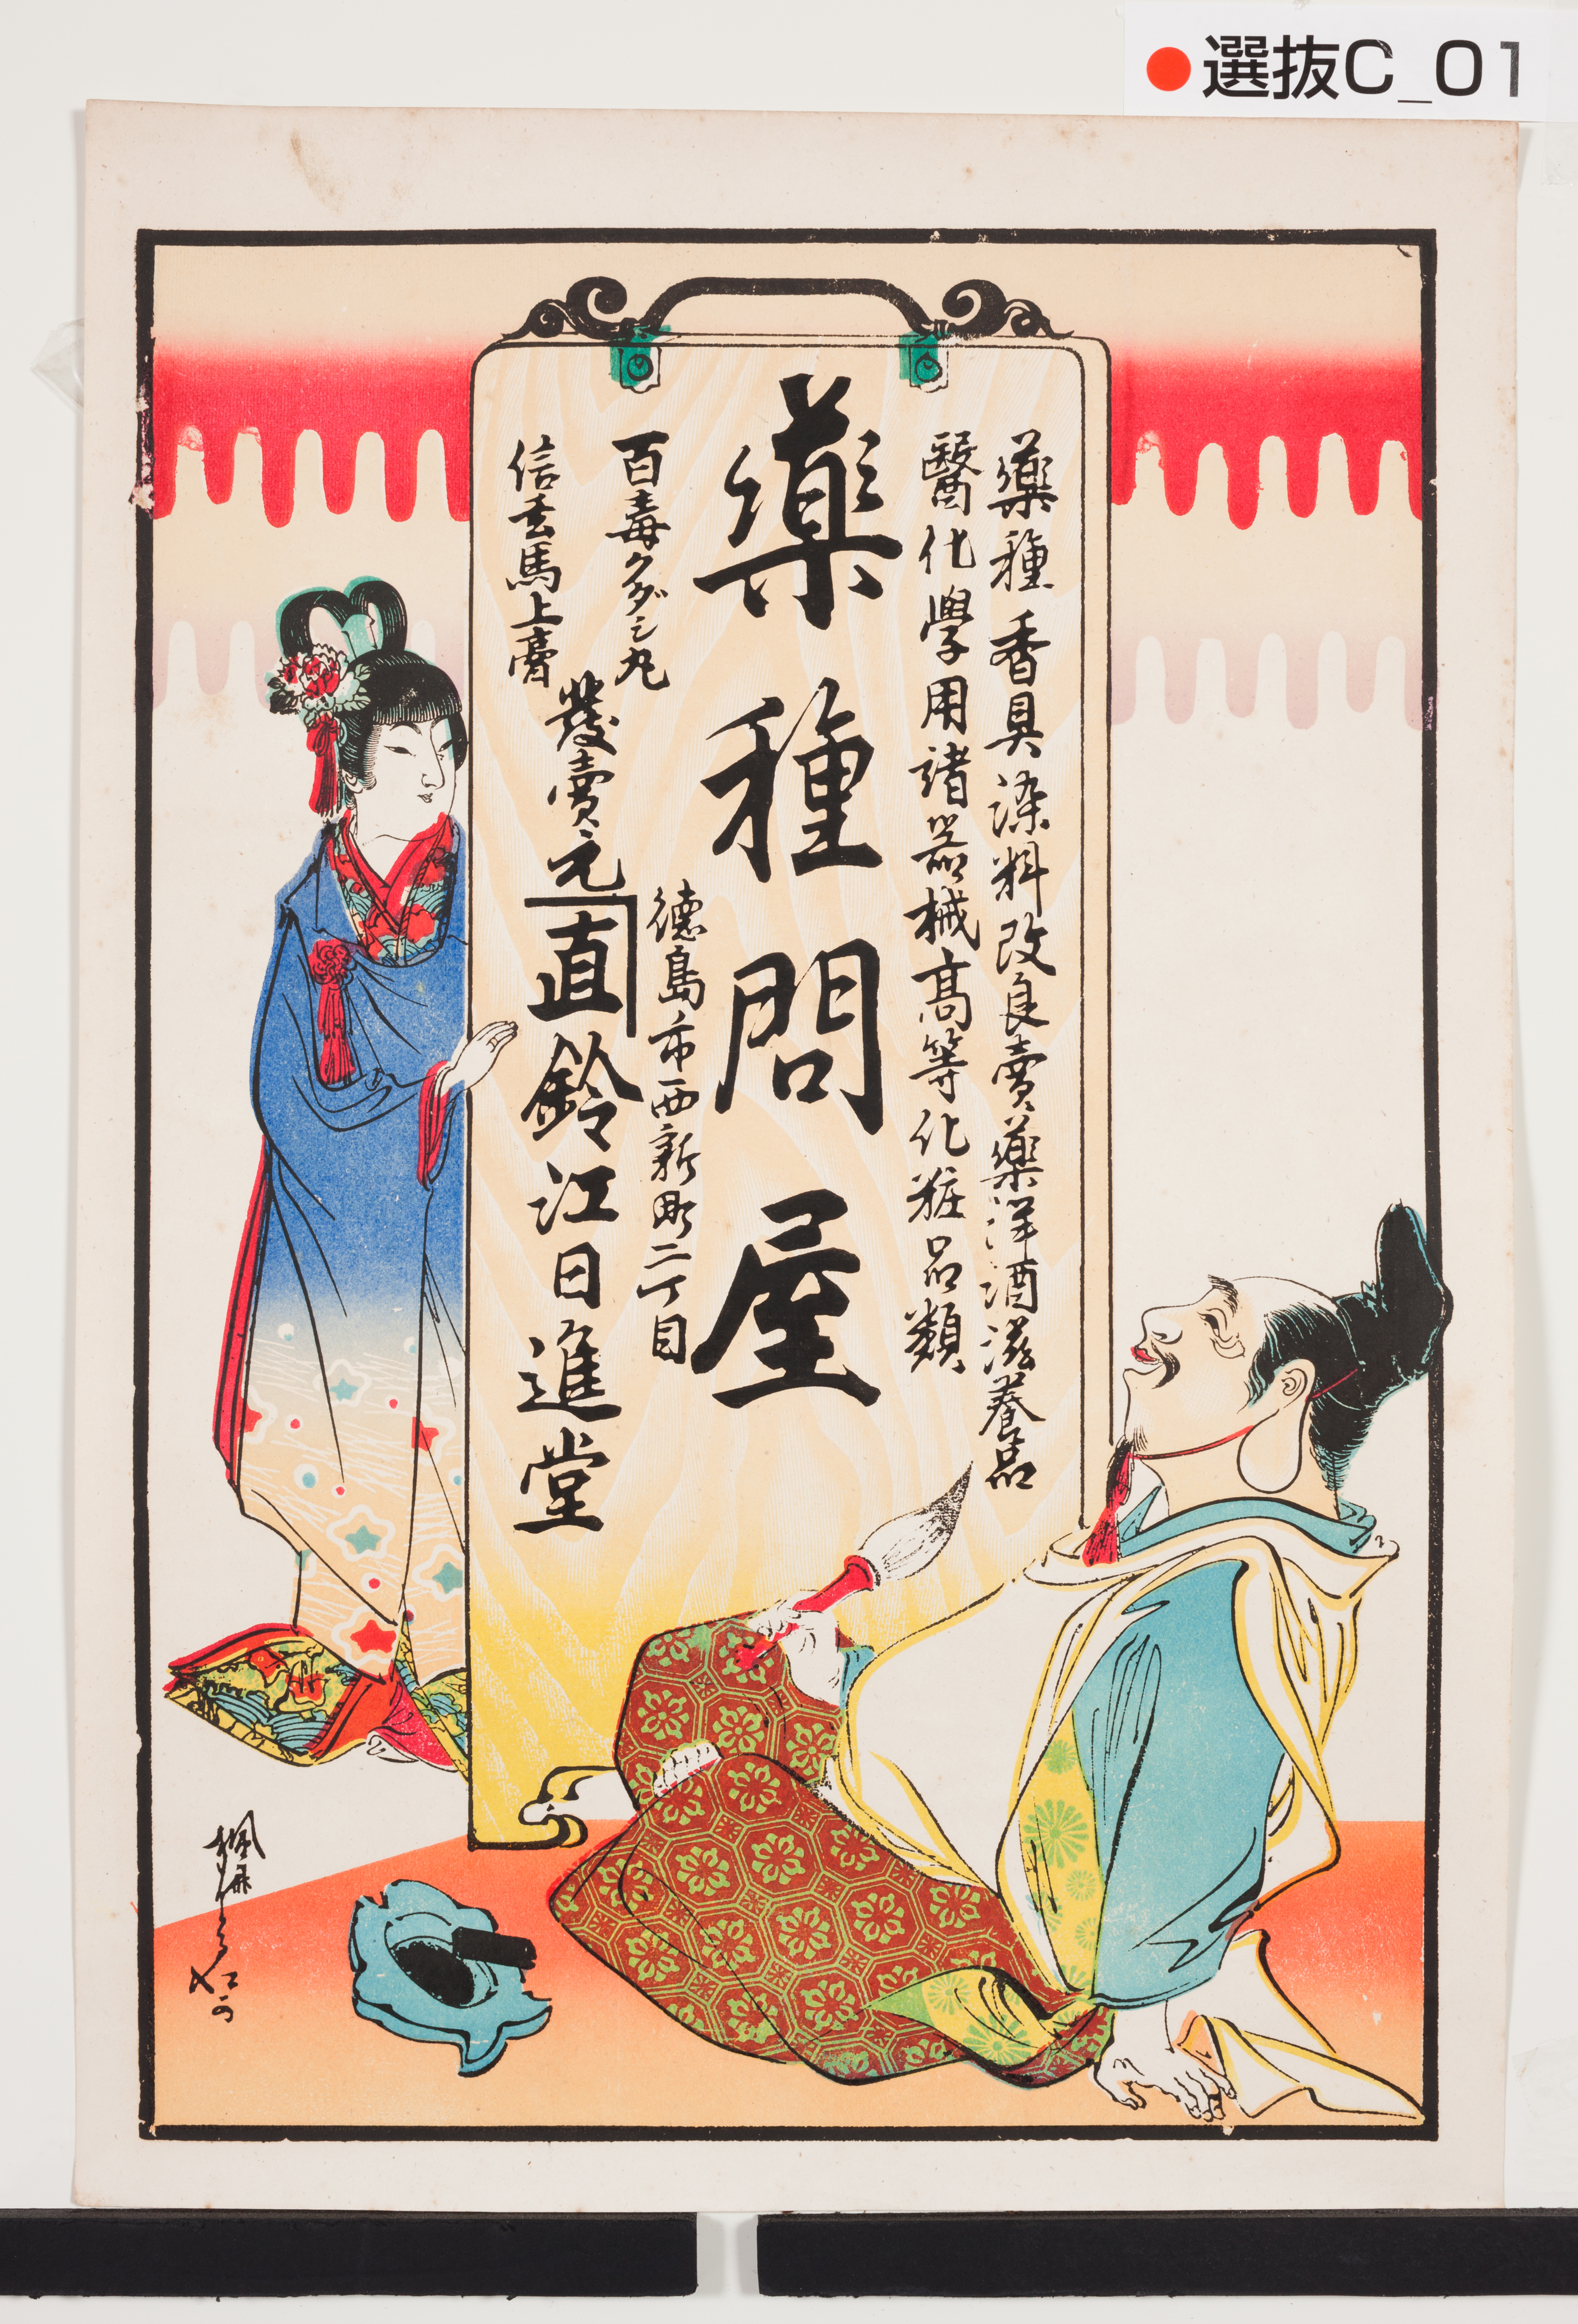 ●選抜C_01
藥種香具染料改良賣藥洋酒滋養品
醫化學用諸器械高等化粧品類
藥種問屋
百毒クダシ丸
信玄馬上膏
發賣元
徳島市西新町二丁目
直鈴江日進堂